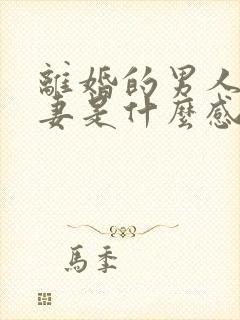 離婚的男人
妻是什麼感
馬季